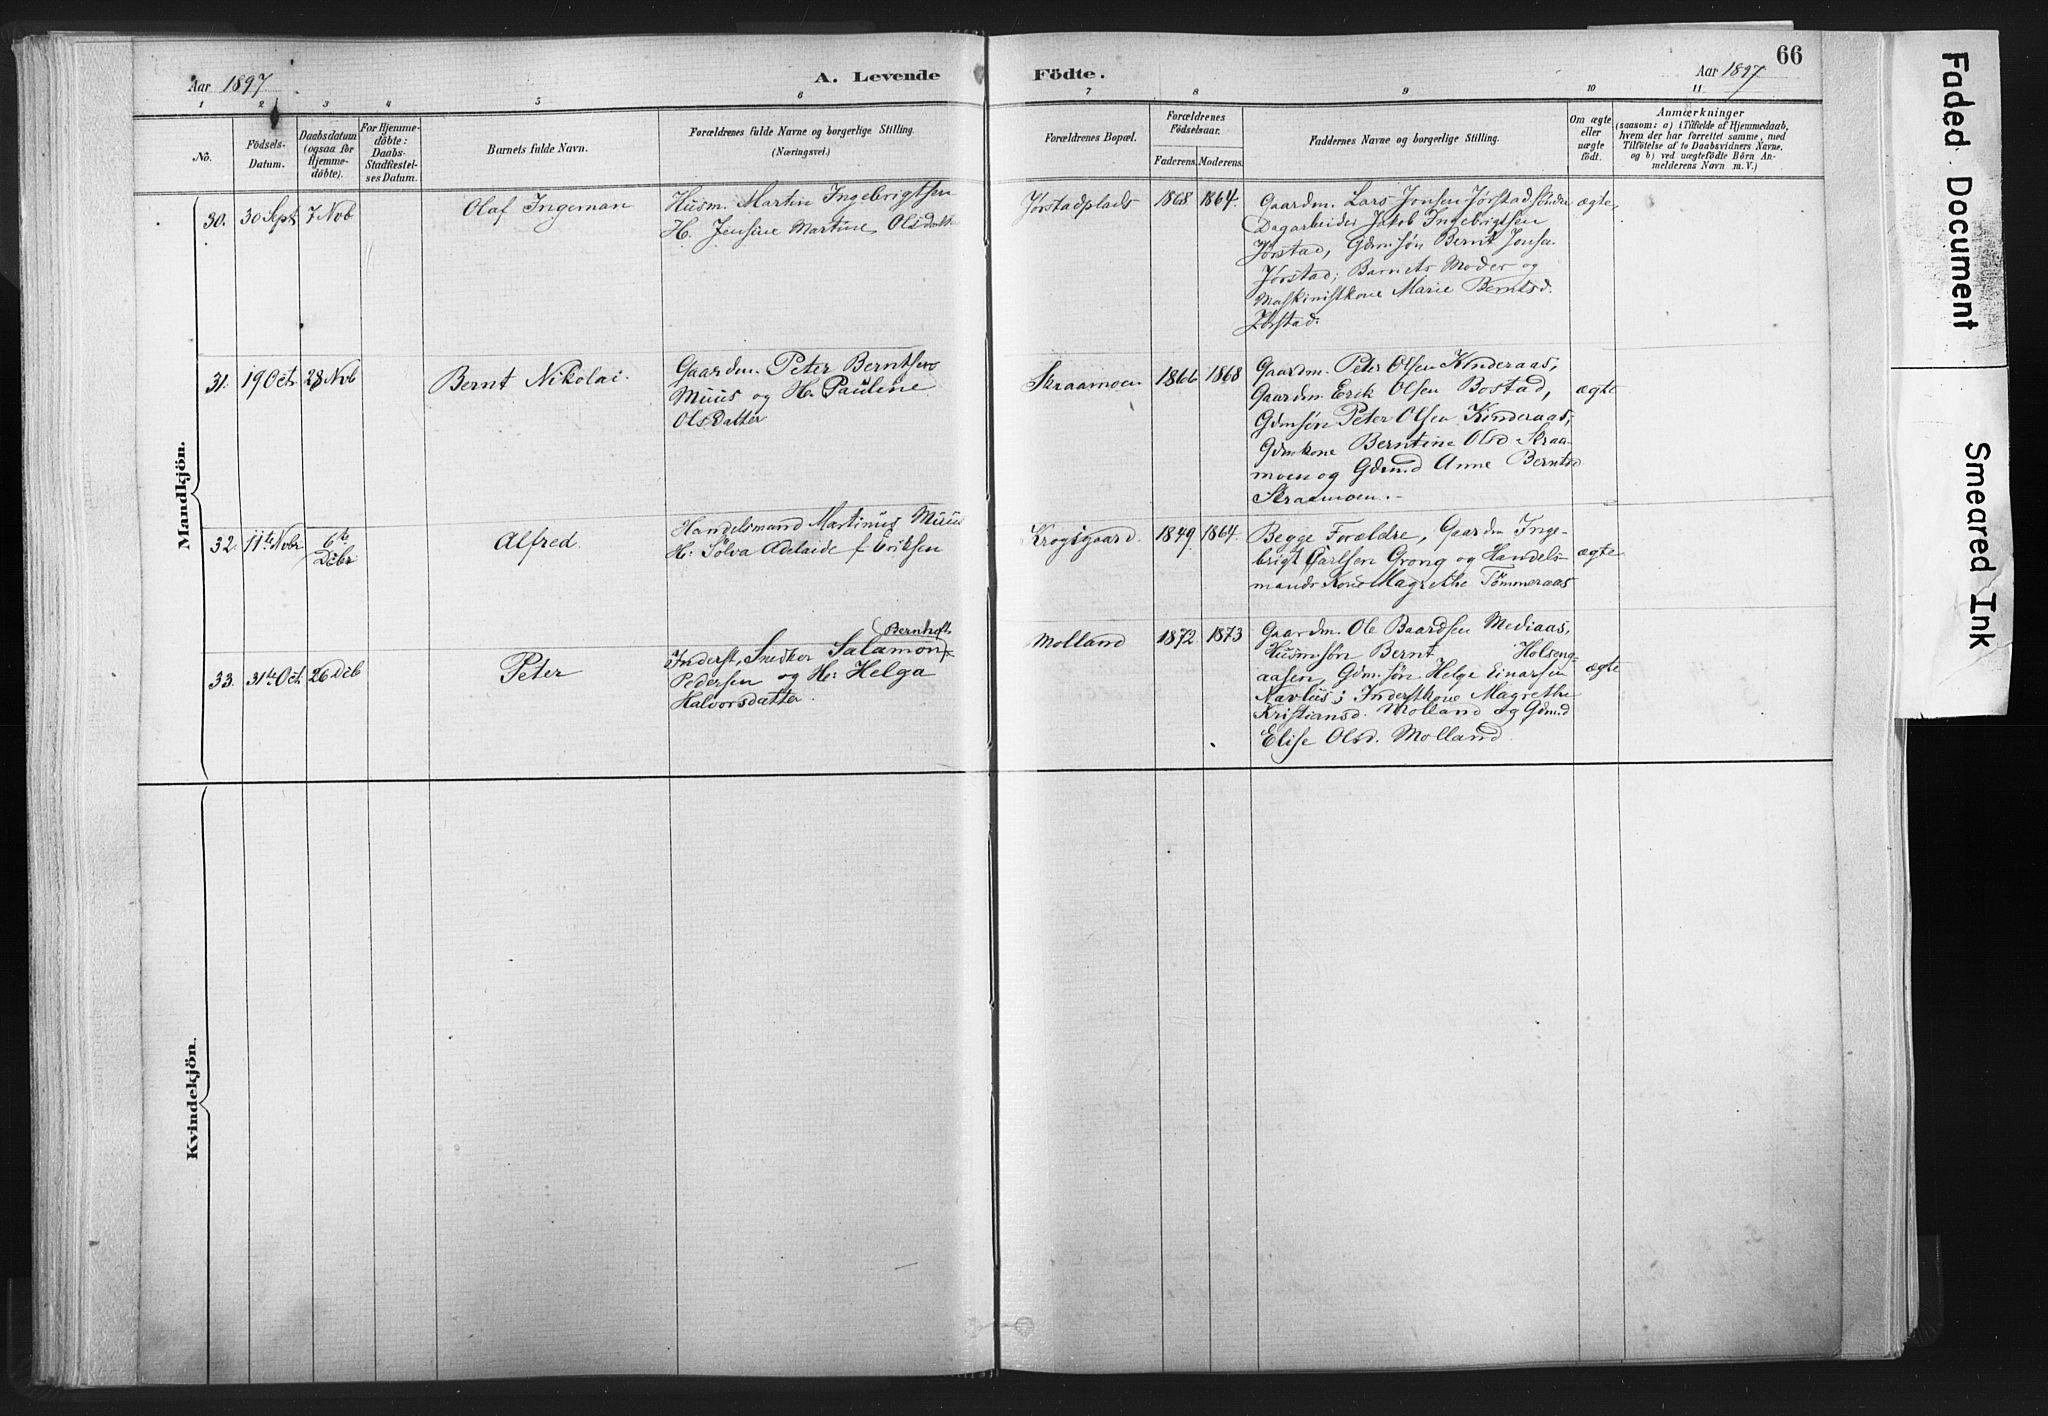 66
Aar 1897
A. Levende
Födte.
Aar 1897
1 2 3 4 5 6 7 8 9 10 11
No.
Födsels-
Datum.
Daabsdatum
(ogsaa for
Hjemme-
døbte).
For Hjemme-
døbte:
Daabs-
Stadfæstel-
ses Datum.
Barnets fulde Navn.
Forældrenes fulde Navne og borgerlige Stilling.
(Næringsvei.)
Forældrenes Bopæl.
Forældrenes
Födselsaar.
Faderens. Moderens.
Faddernes Navne og borgerlige Stilling.
Om ægte
eller
uægte
født.
Anmærkninger
(saasom: a) i Tilfælde af Hjemmedaab,
hvem der har forrettet samme, med
Tilföielse af to Daabsvidners Navne,
og b) ved uægtefödte Börn An-
melderens Navn m. V.)
Mandkjön.
30. 30 Sept 7 Nvb
Olaf Ingeman
Husm. Martin Ingebrigtsen
H. Jensine Martine Olsdatter
Jørstadplads 1868 1864.
Gaardm. Lars Jonsen Jørstad søndre
Dagarbeider Jakob Ingebrigtsen
Jørstad, Gdmsøn Bernt Jonsen
Jørstad; Barnets Moder og
Maskinistkone Marie Berntsd.
Jørstad.
ægte
31. 19 Oct 28 Nvb
Bernt Nikolai.
Gaardm. Peter Berntsen
Muus og H. Pauline
Olsdatter
Skraamoen 1866 1868
Gaardm. Peter Olsen Kinderaas,
Gaardm Erik Olsen Bostad,
Gdmsøn Peter Olsen Kinderaas;
Gdmkone Berntine Olsd Skraa-
moen og Gdmd Anne Berntsd
Skraamoen.
ægte
32. 11te Nvbr 6te
Dcbr
Alfred.
Handelsmand Martinus Muus
H. Sølva Adelaide f. Eriksen
Krogsgaard. 1849 1864.
Begge Forældre, Gaardm Inge-
brigt Carlsen Grong og Handels-
mands Kone Magrethe Tömmeraas
ægte
33. 31te Oct. 26 Dcb
Peter
Bernhoft
Inderst, Snedker Salamon
Pedersen og H: Helga
Halvorsdatter.
Molland 1872 1873
Gaardm. Ole Baardsen Mediaas,
Husmsøn Bernt Holseng-
aasen, Gdmsøn Helge Einarsen
Navlus; Inderstkone Magrethe
Kristiansd. Molland og Gdmd
Elise Olsd. Molland
ægte
Kvindekjön.
Faded Document
Smeared Ink